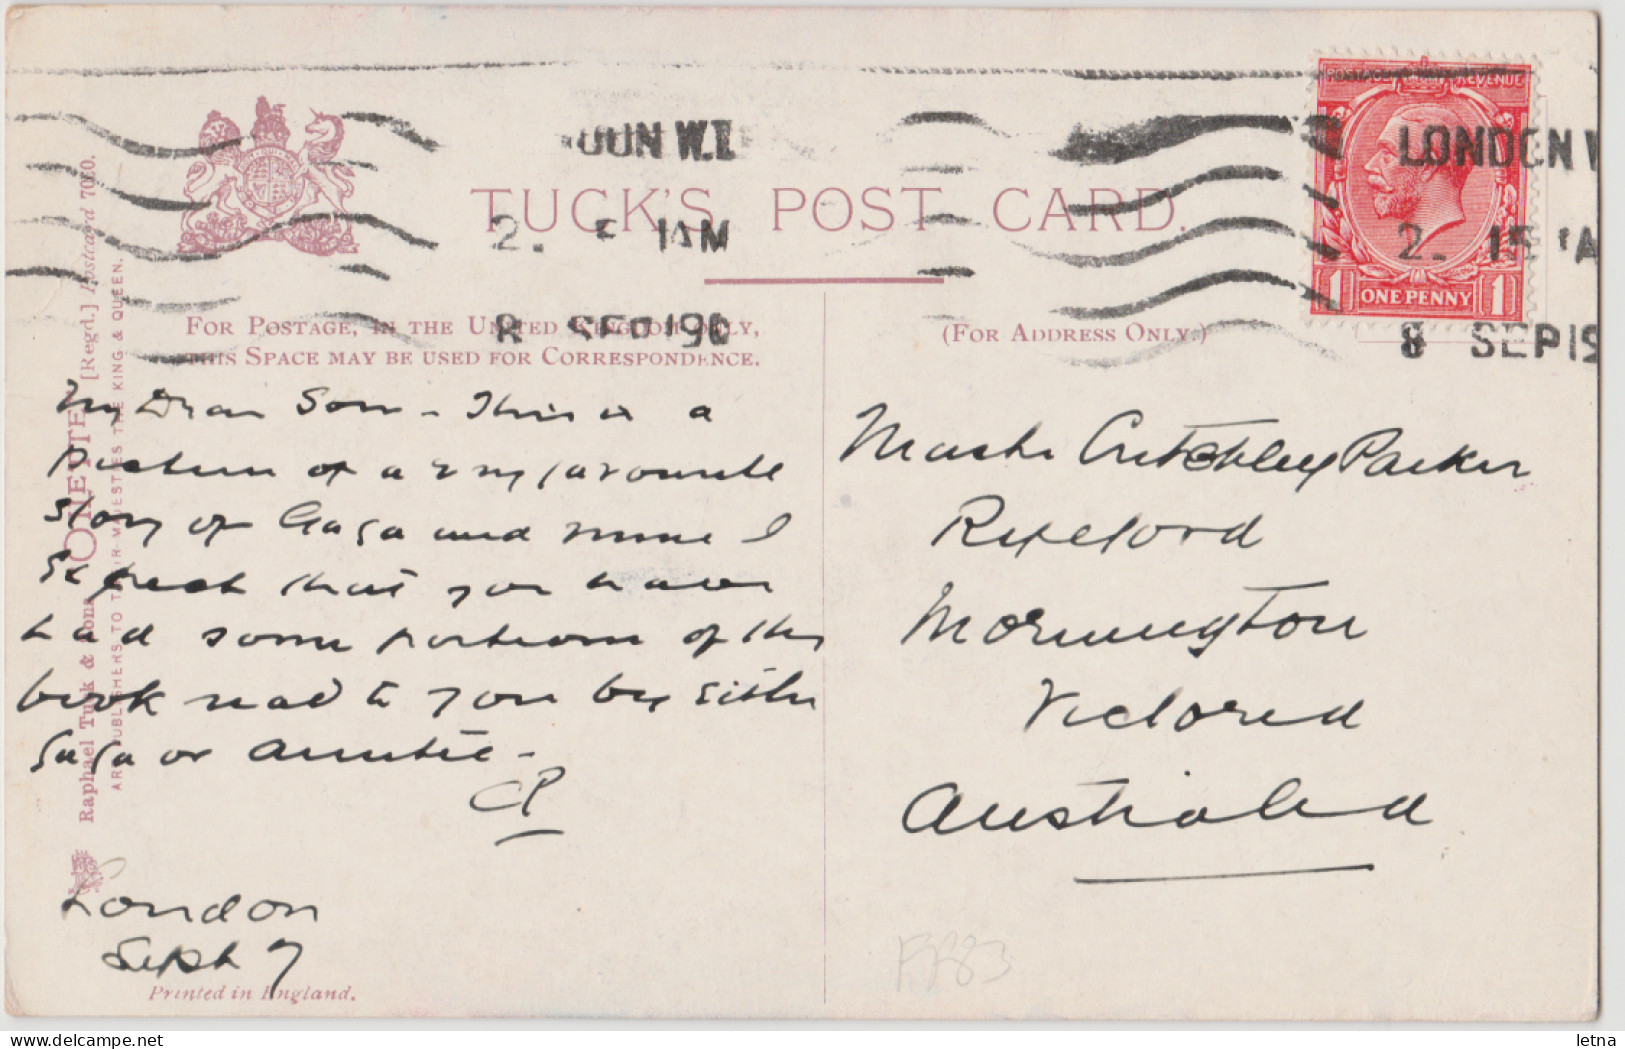 LONDON W
2. 15 A
8 SEP 19
W.1
2. AM
8 SEP 19
POSTAGE REVENUE
1 ONE PENNY 1
TUCK'S POST CARD.
FOR POSTAGE, IN THE UNITED KINGDOM ONLY,
THIS SPACE MAY BE USED FOR CORRESPONDENCE.
(FOR ADDRESS ONLY.)
Raphael Tuck & Sons "OILETTE" [Regd.] Postcard 7030.
ART PUBLISHERS TO THEIR MAJESTIES THE KING & QUEEN.
My Dear Son - This is a
picture of a very favourite
story of Gaga and mine I
expect that you have
had some portions of this
book read to you by either
Gaga or Auntie -
CP
London
Sept 7
Printed in England.
Master Critchley Parker
Mornington
Victoria
Australia
letna